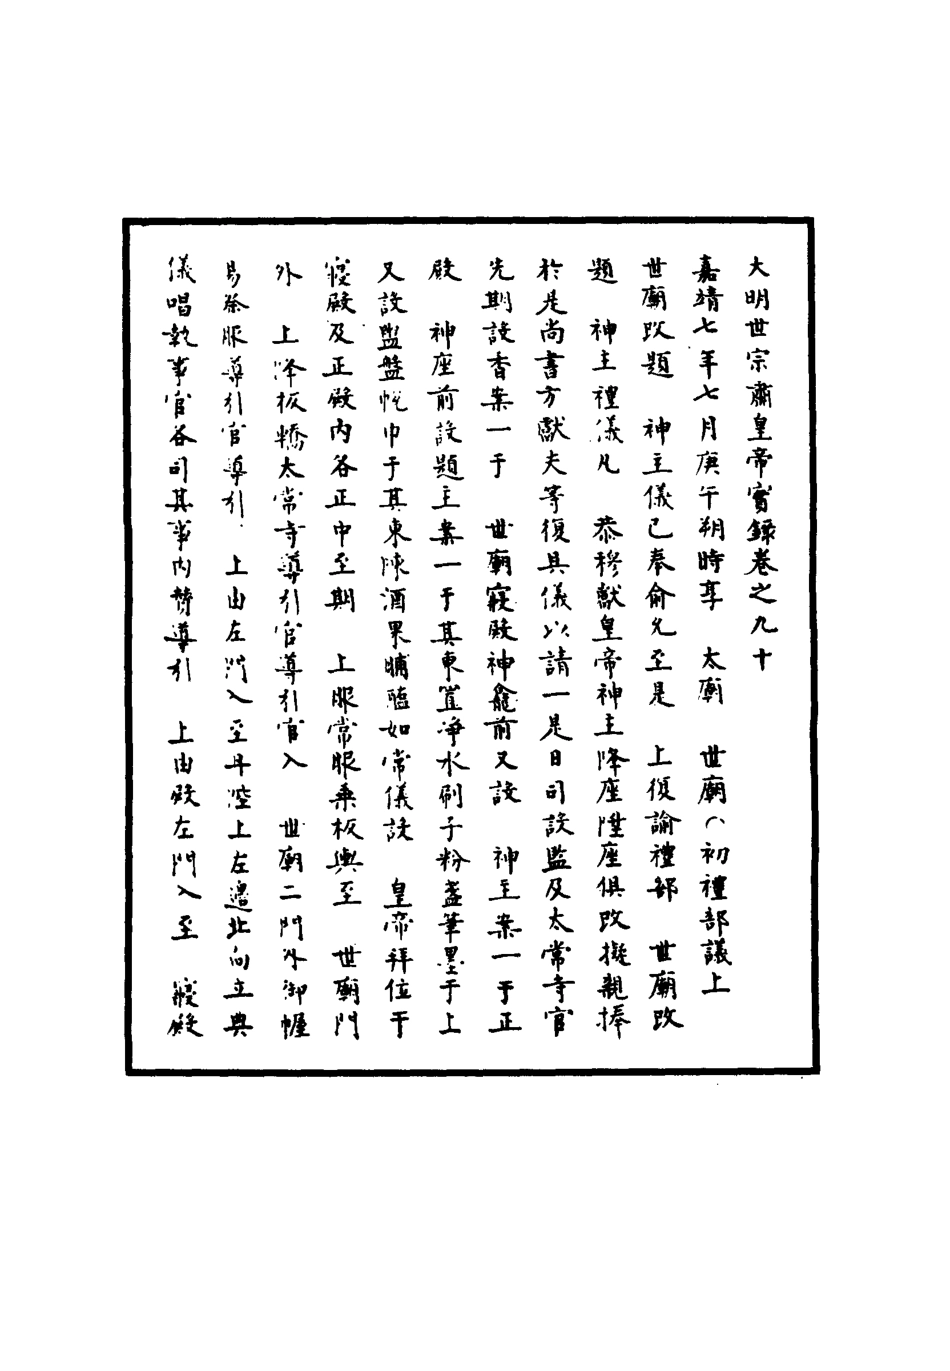 大明世宗肅皇帝實錄卷之九十
嘉靖七年七月庚午朔時享　太廟　世廟○初禮部議上
世廟改題　神主儀已奉俞允至是　上復諭禮部　世廟改
題　神主禮儀凡　恭穆獻皇帝神主降座陞座俱改擬親捧
於是尚書方獻夫等復具儀以請一是日司設監及太常寺官
先期設香案一于　世廟寢殿神龕前又設　神主案一于正
殿　神座前設題主案一于其東置淨水刷子粉盞筆墨于上
又設盥盤帨巾于其東陳酒果脯醢如常儀設　皇帝拜位于
寢殿及正殿內各正中至期　上服常服乘板輿至　世廟門
外　上降板轎太常寺導引官導引官入　世廟二門外御幄
易祭服導引官導引　上由左門入至丹墀上左邊北向立典
儀唱執事官各司其事內贊導引　上由殿左門入至　寢殿